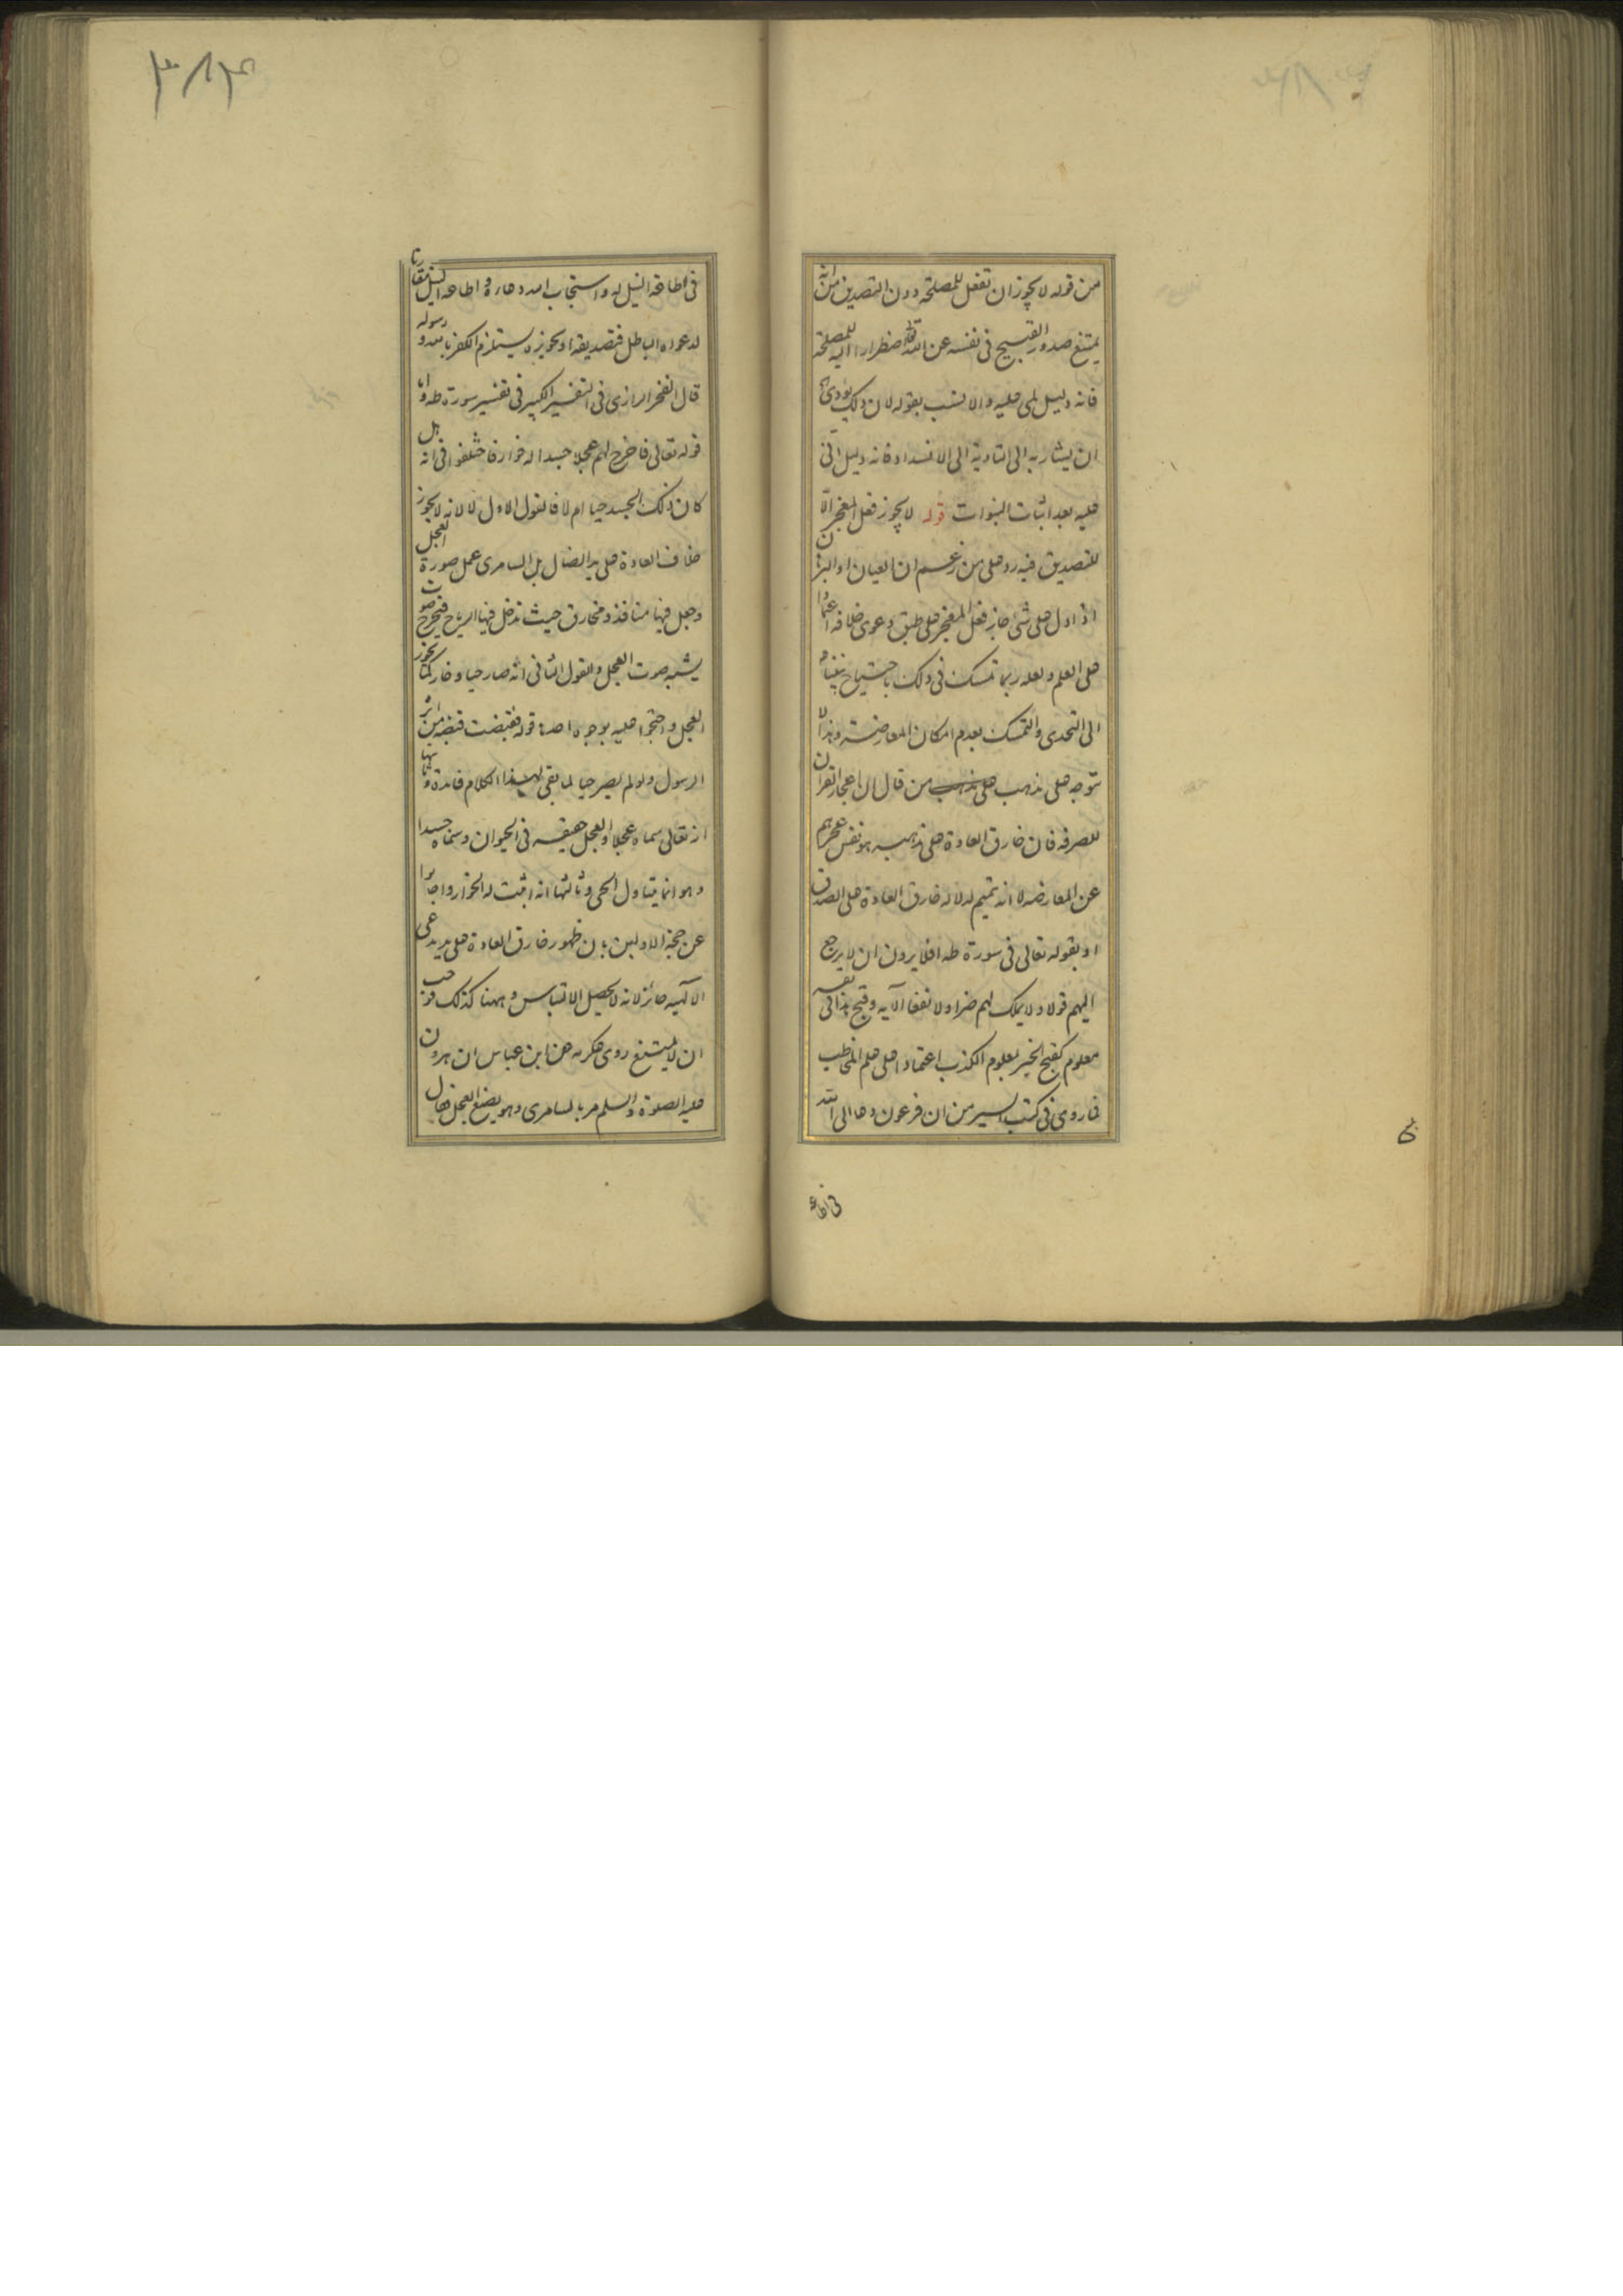 من قوله لا يجوز ان تفعل للمصلحة دون التصديق من انه
يمتنع صدور القبيح فى نفسه عن الله تعالى اضطرارا اليه للمصلحة
فانه دليل لمى عليه والانسب بقوله لان ذلك يؤدى
ان يشار به الى التادية الى الافساد فانه دليل انى
عليه بعد اثبات النبوات قوله لا يجوز فعل المعجز الّا
للتصديق فيه رد على من زعم ان العيان او البرهان
اذا دل على شئ جاز فعل المعجز على طبق دعوى خلافه اعتمادا
على العلم ولعله ربما تمسك فى ذلك باحتياج
الى التحدى والتمسك بعدم امكان المعارضة وهذا لا
توجه على مذهب على مذهب من قال ان اعجاز القران
للصرفه فان خارق العادة على مذهبه هو نفس عجزهم
عن المعارضه لا انه تتميم لدلاله خارق العادة على الصدق
او بقوله تعالى فى سورة طه افلا يرون ان لا يرجع
اليهم قولا ولا يملك لهم ضرا ولا نفعا الآيه وقبح هذا فى نفسه
معلوم كقبح الخبر بمعلوم الكذب اعتمادا على علم المخاطب
فما روى فى كتب السير من ان فرعون دعا الى الله
فى اطاعة
٣٨٣
فى اطاعة النيل له واستجاب الله دعاءه و اطاعه النيل مقارنا
لدعواه الباطل فتصديقه او تجويزه يستلزم الكفر بالله ورسوله
قال الفخر الرازى فى التفسير الكبير فى تفسير سورة طه واما
قوله تعالى فاخرج لهم عجلا جسدا له خوار فاختلفوا فى انه هل
كان ذلك الجسد حيا ام لا فالقول الاول لا لانه لا يجوز
خلاف العادة على يد الضال بل السامرى عمل صورة العجل
وجعل فيها منافذ ومخارق حيث تدخل فيها الرياح فيخرج صوت
يشبه صوت العجل والقول الثانى انه صار حيا وخار كما يخور
العجل واحتجوا عليه بوجوه احدها قوله فقبضت قبضة من اثر
الرسول ولو لم يصر حيا لما بقى لهذا الكلام فائدة وثانيها
انه تعالى سماه عجلا والعجل حقيقه فى الحيوان وسماه جسدا
وهو انما يتناول الحى وثالثها انه اثبت له الخوار واجابوا
عن حجة الاولين بان ظهور خارق العادة على يد مدعى
الالهيه جائز لانه لا يحصل الالتباس وههنا كذلك فوجب
ان لا يمتنع روى عكرمه عن ابن عباس ان هرون
عليه الصلوة والسلم مر بالسامرى وهو يصنع العجل فقال